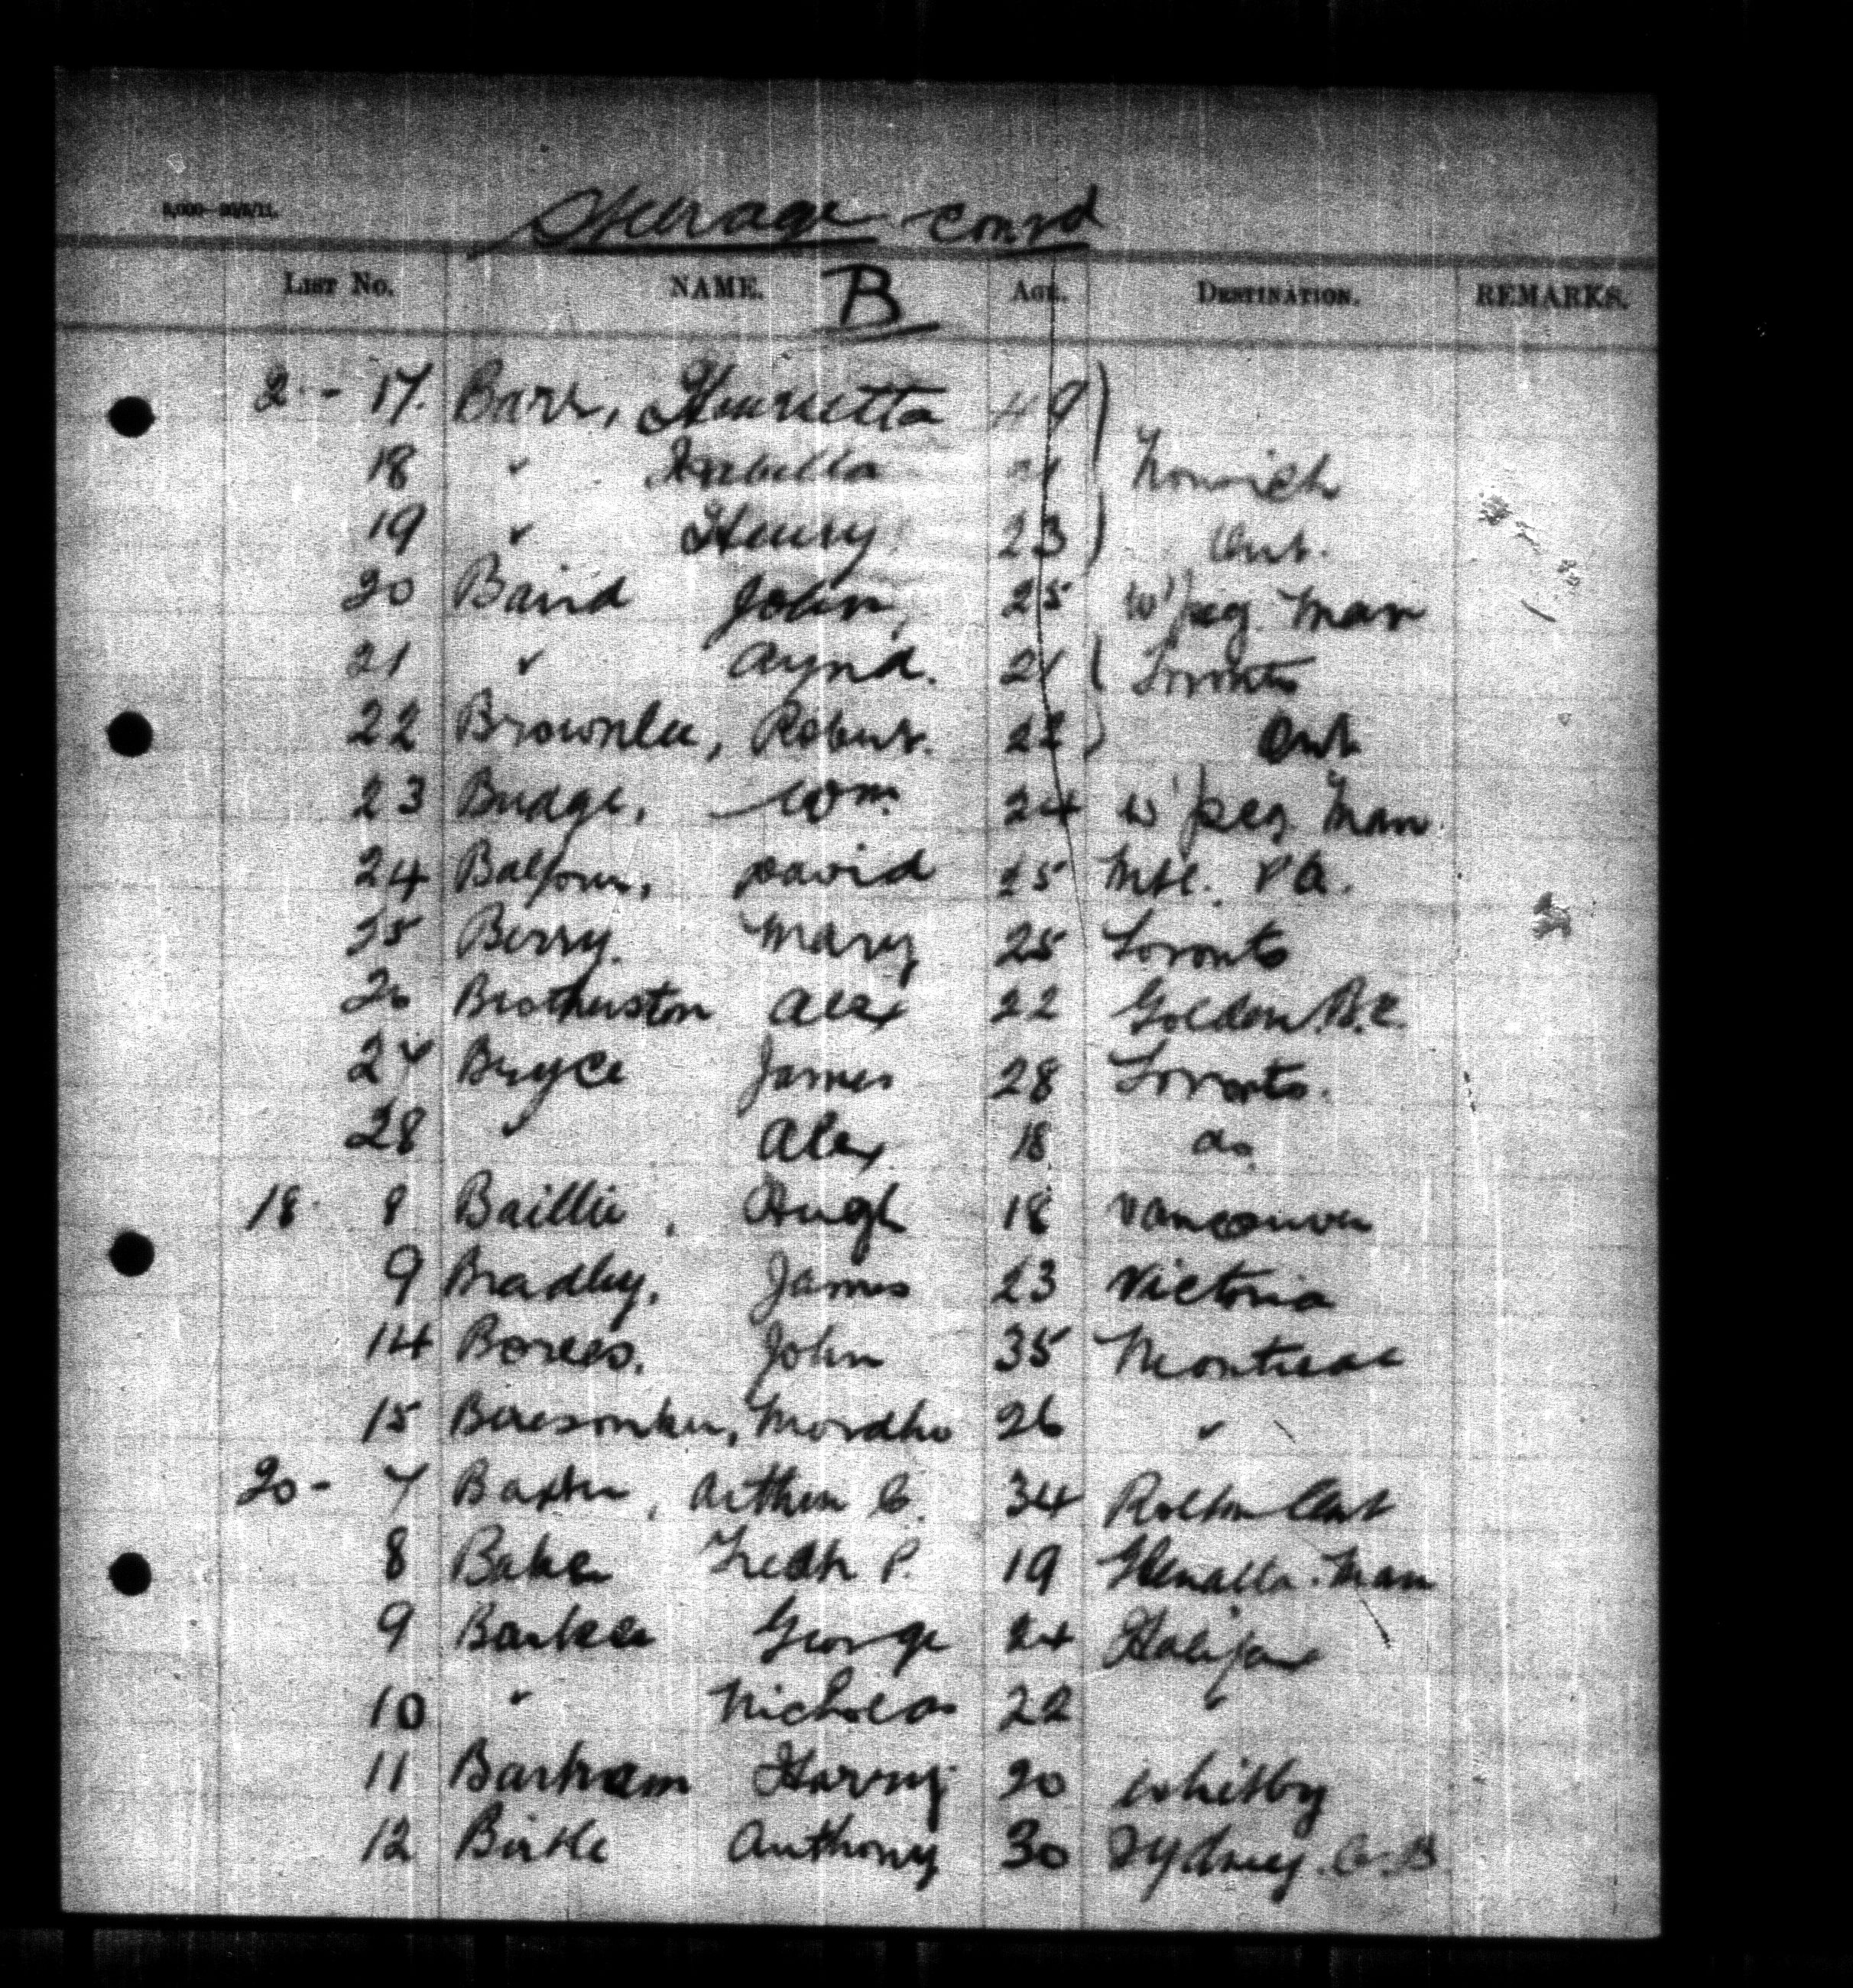 5,000—26/5/11.
Steerage cont'd
LIST No. NAME. B AGE. DESTINATION. REMARKS.
2 - 17. Barr, Henrietta 49
18 " Isabella 21 Norwich
19 " Henry 23 Ont.
20 Baird John, 25 W'peg. Man
21 " Aynd. 21 Toronto
22 Brownlee, Robert. 22 Ont
23 Budge, Wm. 24 W'peg Man.
24 Balfour, David 25 Mtl. P.Q.
25 Berry. Mary 25 Toronto
26 Brotherston Alex 22 Golden. B.C.
27 Bryce James 28 Toronto.
28 " Alex 18 do
18 8 Baillie, Hugh 18 Vancouver
9 Bradley, James 23 Victoria
14 John 35 Montreal
15 26 "
20 - 7 Baxter, Arthur C. 34
8 Baker Fredk P. 19 Glenella. Man
9 Barker George 24 Halifax
10 " Nicholas 22 "
11 Bartram Harry 20 Whitby
12 Birkle Anthony 30 Sydney. C.B.